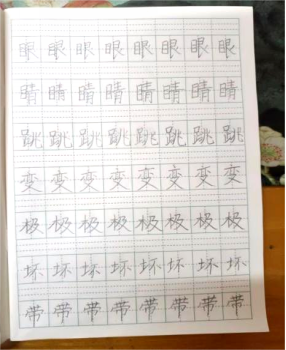 眼眼眼眼眼眼眼眼
睛睛睛睛睛睛睛睛
跳跳跳跳跳跳跳跳
变变变变变变变变
极极极极极极极极
坏坏坏坏坏坏坏坏
带带带带带带带带